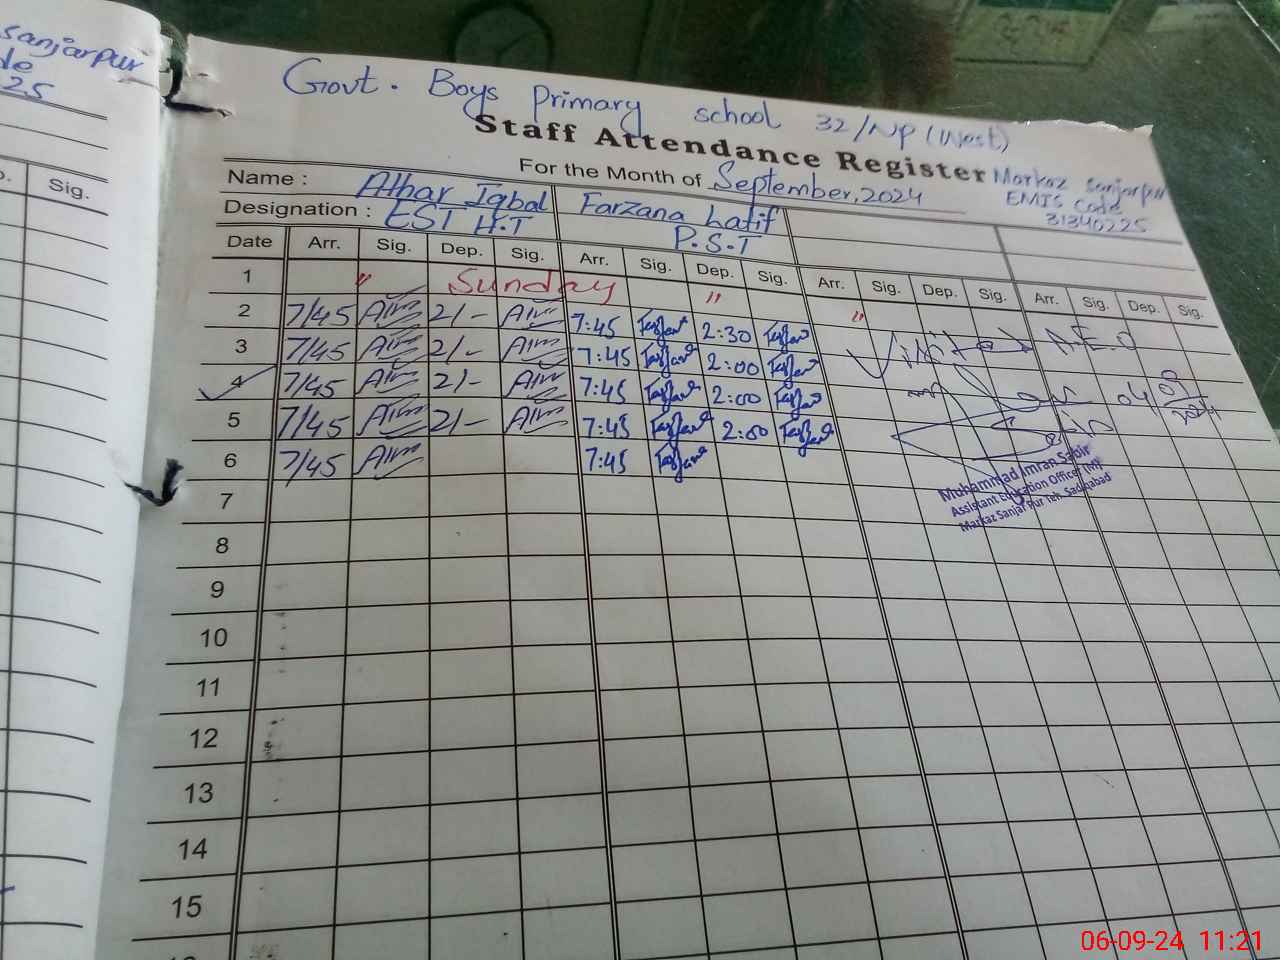 sanjarpur
de
25
Sig.
Govt. Boys Primary school 32/NP (West)
Staff Attendance Register
Markaz Sanjarpur
EMIS Code
31340225
For the Month of September, 2024
Name : Athar Iqbal Farzana Latif
Designation : EST H.T P.S.T
Date Arr. Sig. Dep. Sig. Arr. Sig. Dep. Sig. Arr. Sig. Dep. Sig. Arr. Sig. Dep. Sig.
1 " Sunday " "
2 7/45 2/- 7:45 2:30
3 7/45 2/- 7:45 2:00
4 7/45 2/- 7:45 2:00
5 7/45 2/- 7:45 2:00
6 7/45 7:45
7
8
9
10
11
12
13
14
15
Visited AEO
04/09/2024
Muhammad Imran Sabir
Assistant Education Officer (M)
Markaz Sanjar Pur Teh. Sadiqabad
06-09-24 11:21